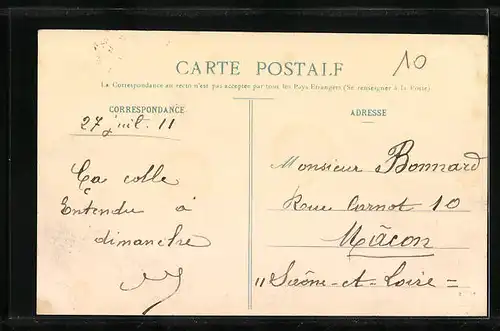 10
CARTE POSTALE
La Correspondance au recto n'est pas acceptée par tous les Pays Etrangers (Se renseigner à la Poste)
CORRESPONDANCE
27 juil. 11
Ça colle
Entendu à
dimanche
ADRESSE
Monsieur Bonnard
Rue Carnot 10
Mâcon
" Saône-et-Loire =